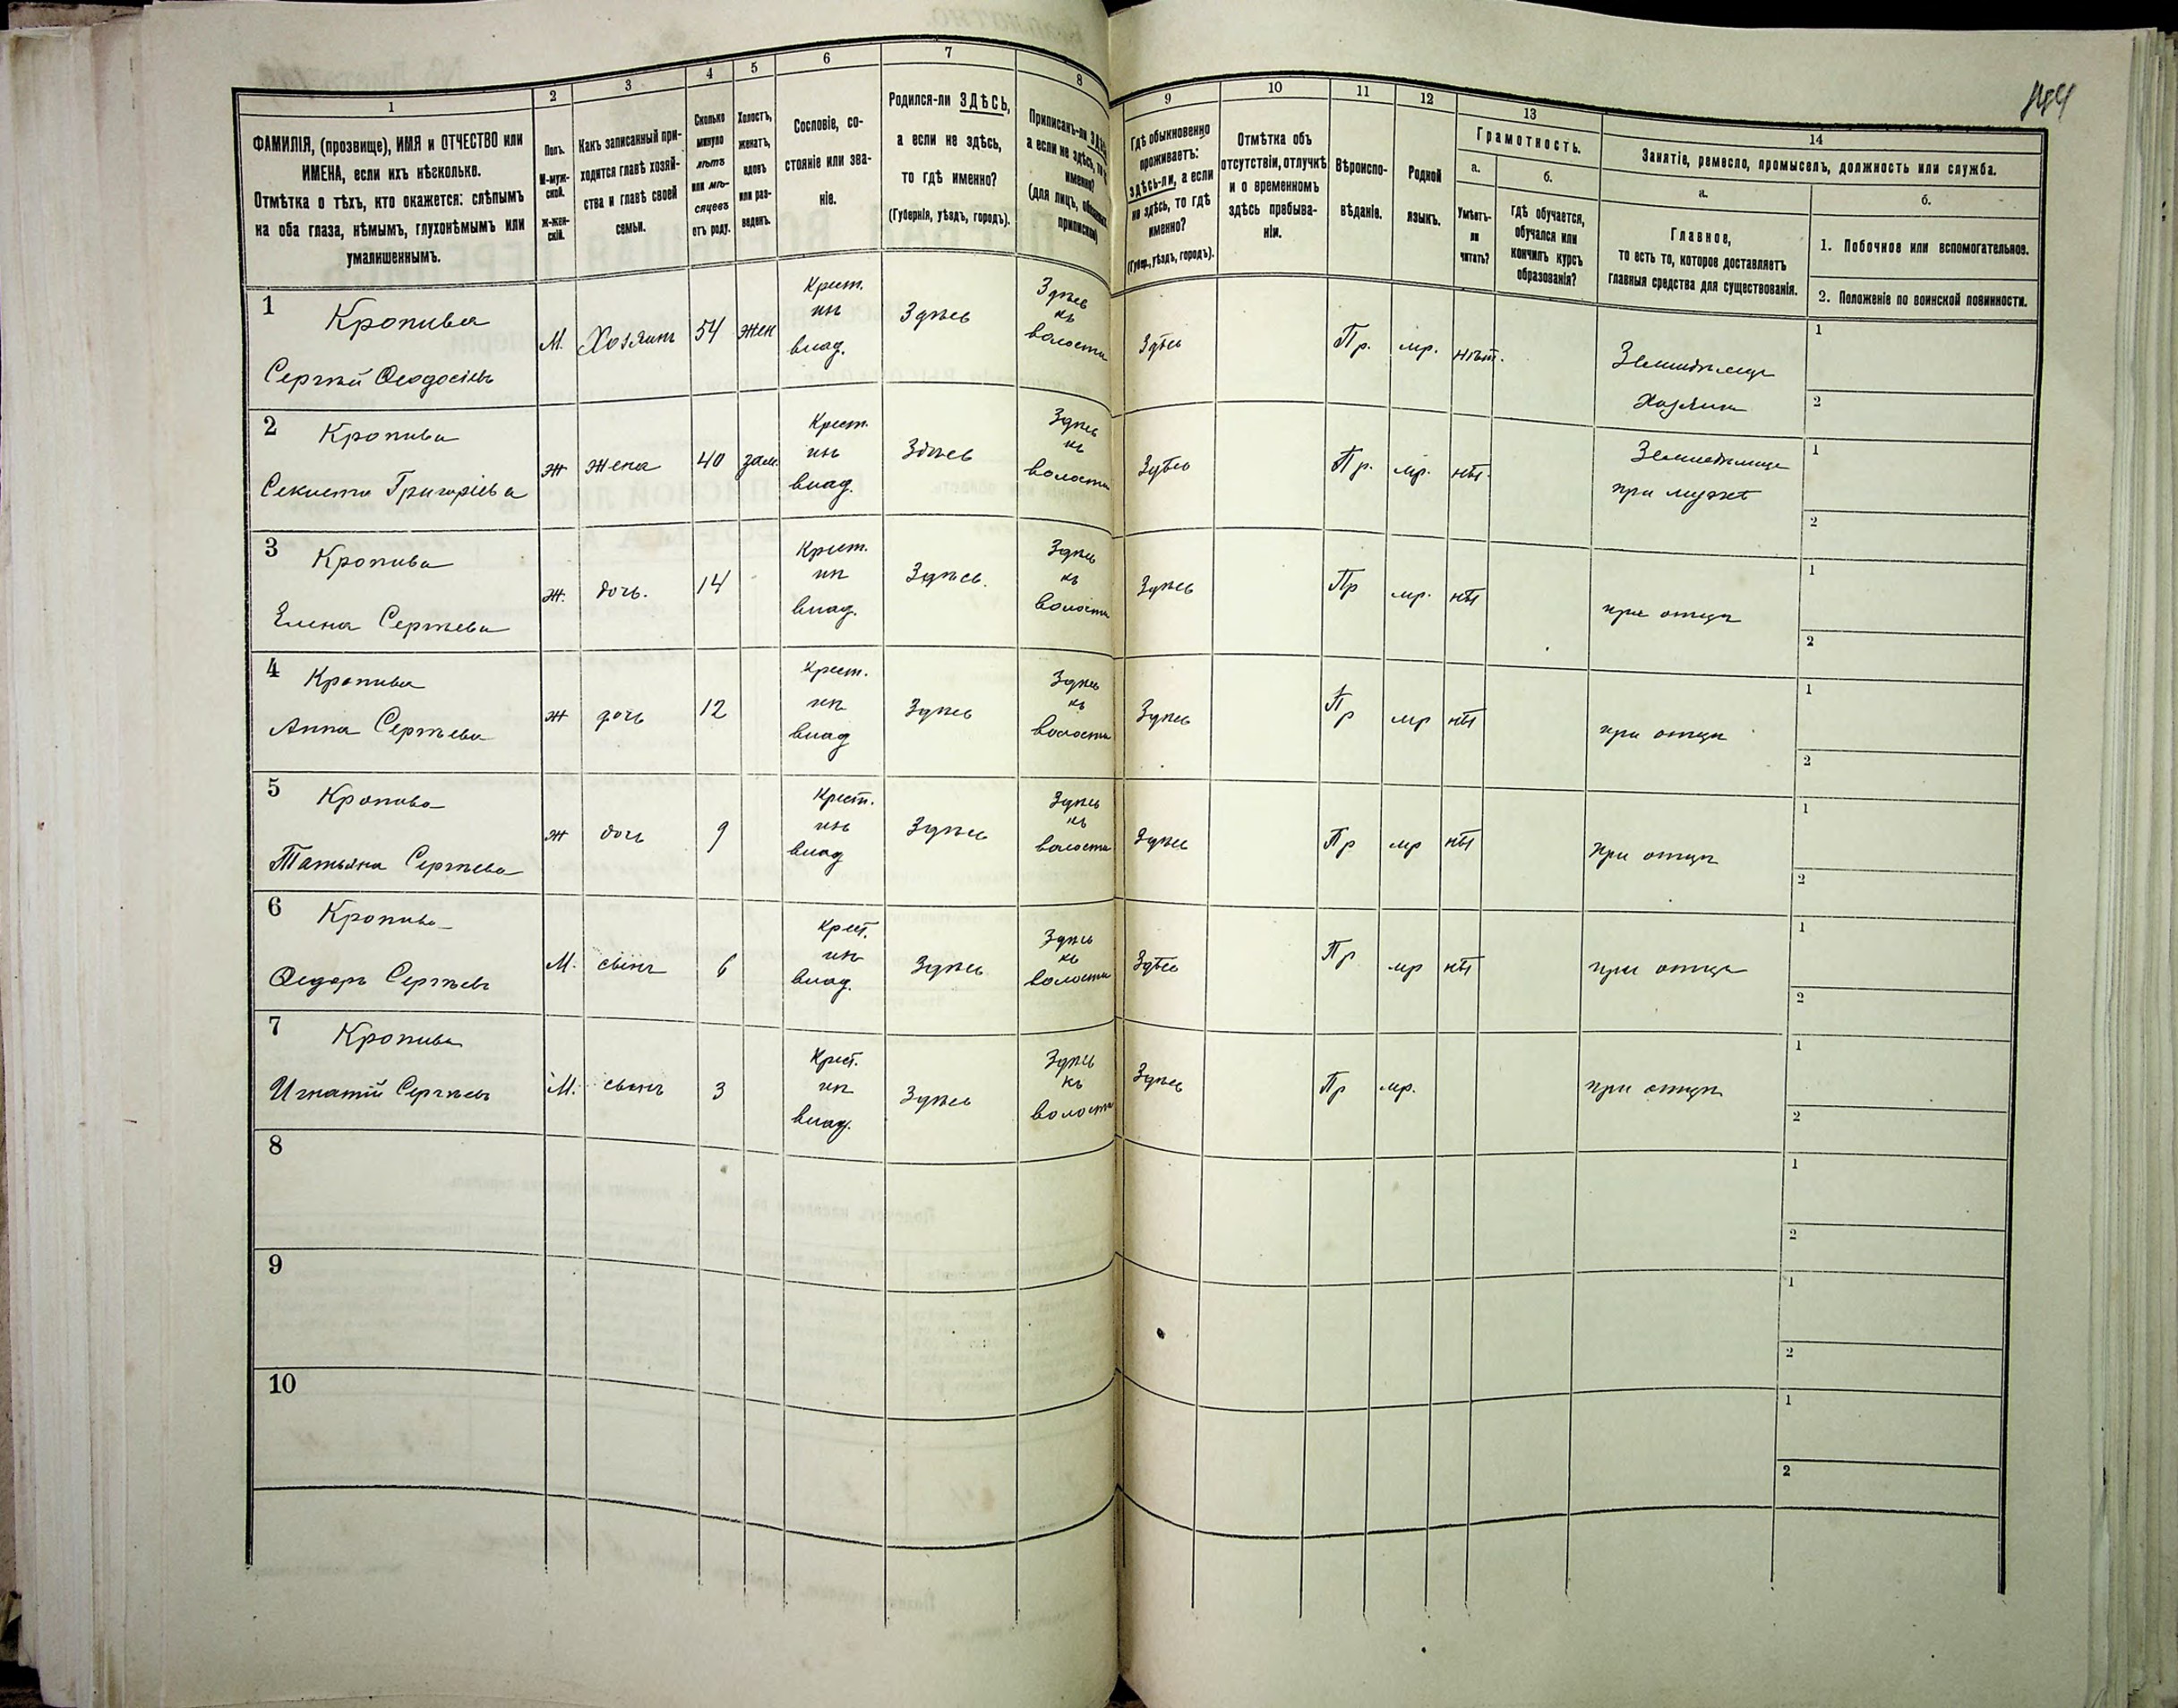 1
ФАМИЛІЯ, (прозвище), ИМЯ и ОТЧЕСТВО или
ИМЕНА, если ихъ нѣсколько.
Отмѣтка о тѣхъ, кто окажется: слѣпымъ
на оба глаза, нѣмымъ, глухонѣмымъ или
умалишеннымъ.
2
Полъ.
М-муж-
ской.
Ж-жен-
скій.
3
Какъ записанный при-
ходится главѣ хозяй-
ства и главѣ своей
семьи.
4
Сколько
минуло
лѣтъ
или мѣ-
сяцевъ
отъ роду.
5
Холостъ,
женатъ,
вдовъ
или раз-
веденъ.
6
Сословіе, со-
стояніе или зва-
ніе.
7
Родился-ли ЗДѢСЬ,
а если не здѣсь,
то гдѣ именно?
(Губернія, уѣздъ, городъ).
8
Приписанъ-ли ЗДѢСЬ,
а если не здѣсь, то
именно?
(для лицъ,
припискѣ)
9
Гдѣ обыкновенно
проживаетъ:
здѣсь-ли, а если
не здѣсь, то гдѣ
именно?
(Губер., уѣздъ, городъ).
10
Отмѣтка объ
отсутствіи, отлучкѣ
и о временномъ
здѣсь пребыва-
ніи.
11
Вѣроиспо-
вѣданіе.
12
Родной
языкъ.
13
Грамотность.
а.
Умѣетъ-
ли
читать?
б.
гдѣ обучается,
обучался или
кончилъ курсъ
образованія?
14
Занятіе, ремесло, промыселъ, должность или служба.
а.
Главное,
то есть то, которое доставляетъ
главныя средства для существованія.
б.
1. Побочное или вспомогательное.
2. Положеніе по воинской повинности.
1 Кропива
Сергѣй Ѳеодосіевъ
М. Хозяинъ 54 жен
Крест.
изъ
влад.
Здѣсь
Здѣсь
къ
волости
Здѣсь Пр. мр. нѣт.
Земледѣлецъ
Хозяинъ
1
2
2 Кропива
Секлета Григоріева
ж жена 40 зам.
Крест.
изъ
влад.
Здѣсь
Здѣсь
къ
волости
Здѣсь Пр. мр. нѣт.
при мужѣ
1
2
3 Кропива
Елена Сергѣева
ж. дочь. 14
Крест.
изъ
влад.
Здѣсь.
Здѣсь
къ
волости
Здѣсь Пр мр. нѣт
при отцѣ
1
2
4 Кропива
Анна Сергѣева
ж дочь 12
Крест.
изъ
влад
Здѣсь
Здѣсь
къ
волости
Здѣсь Пр мр нѣт
при отцѣ
1
2
5 Кропива
Татьяна Сергѣева
ж дочь 9
Крест.
изъ
влад
Здѣсь
Здѣсь
къ
волости
Здѣсь Пр мр нѣт
при отцѣ
1
2
6 Кропива
Ѳедоръ Сергѣевъ
М. сынъ 6
Крест.
изъ
влад.
Здѣсь
Здѣсь
къ
волости
Здѣсь Пр мр нѣт
при отцѣ
1
2
7 Кропива
Игнатій Сергѣевъ
М. сынъ 3
Крест.
изъ
влад.
Здѣсь
Здѣсь
къ
волости
Здѣсь Пр мр.
при отцѣ
1
2
8
1
2
9
1
2
10
1
2